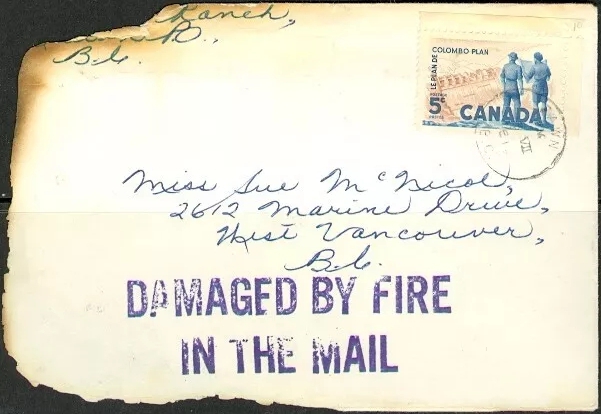 Ranch,
B.C.
COLOMBO PLAN
LE PLAN DE
POSTAGE
5¢
POSTES
CANADA
Miss Sue McNicol,
2612 Marine Drive,
West Vancouver,
B.C.
DAMAGED BY FIRE
IN THE MAIL